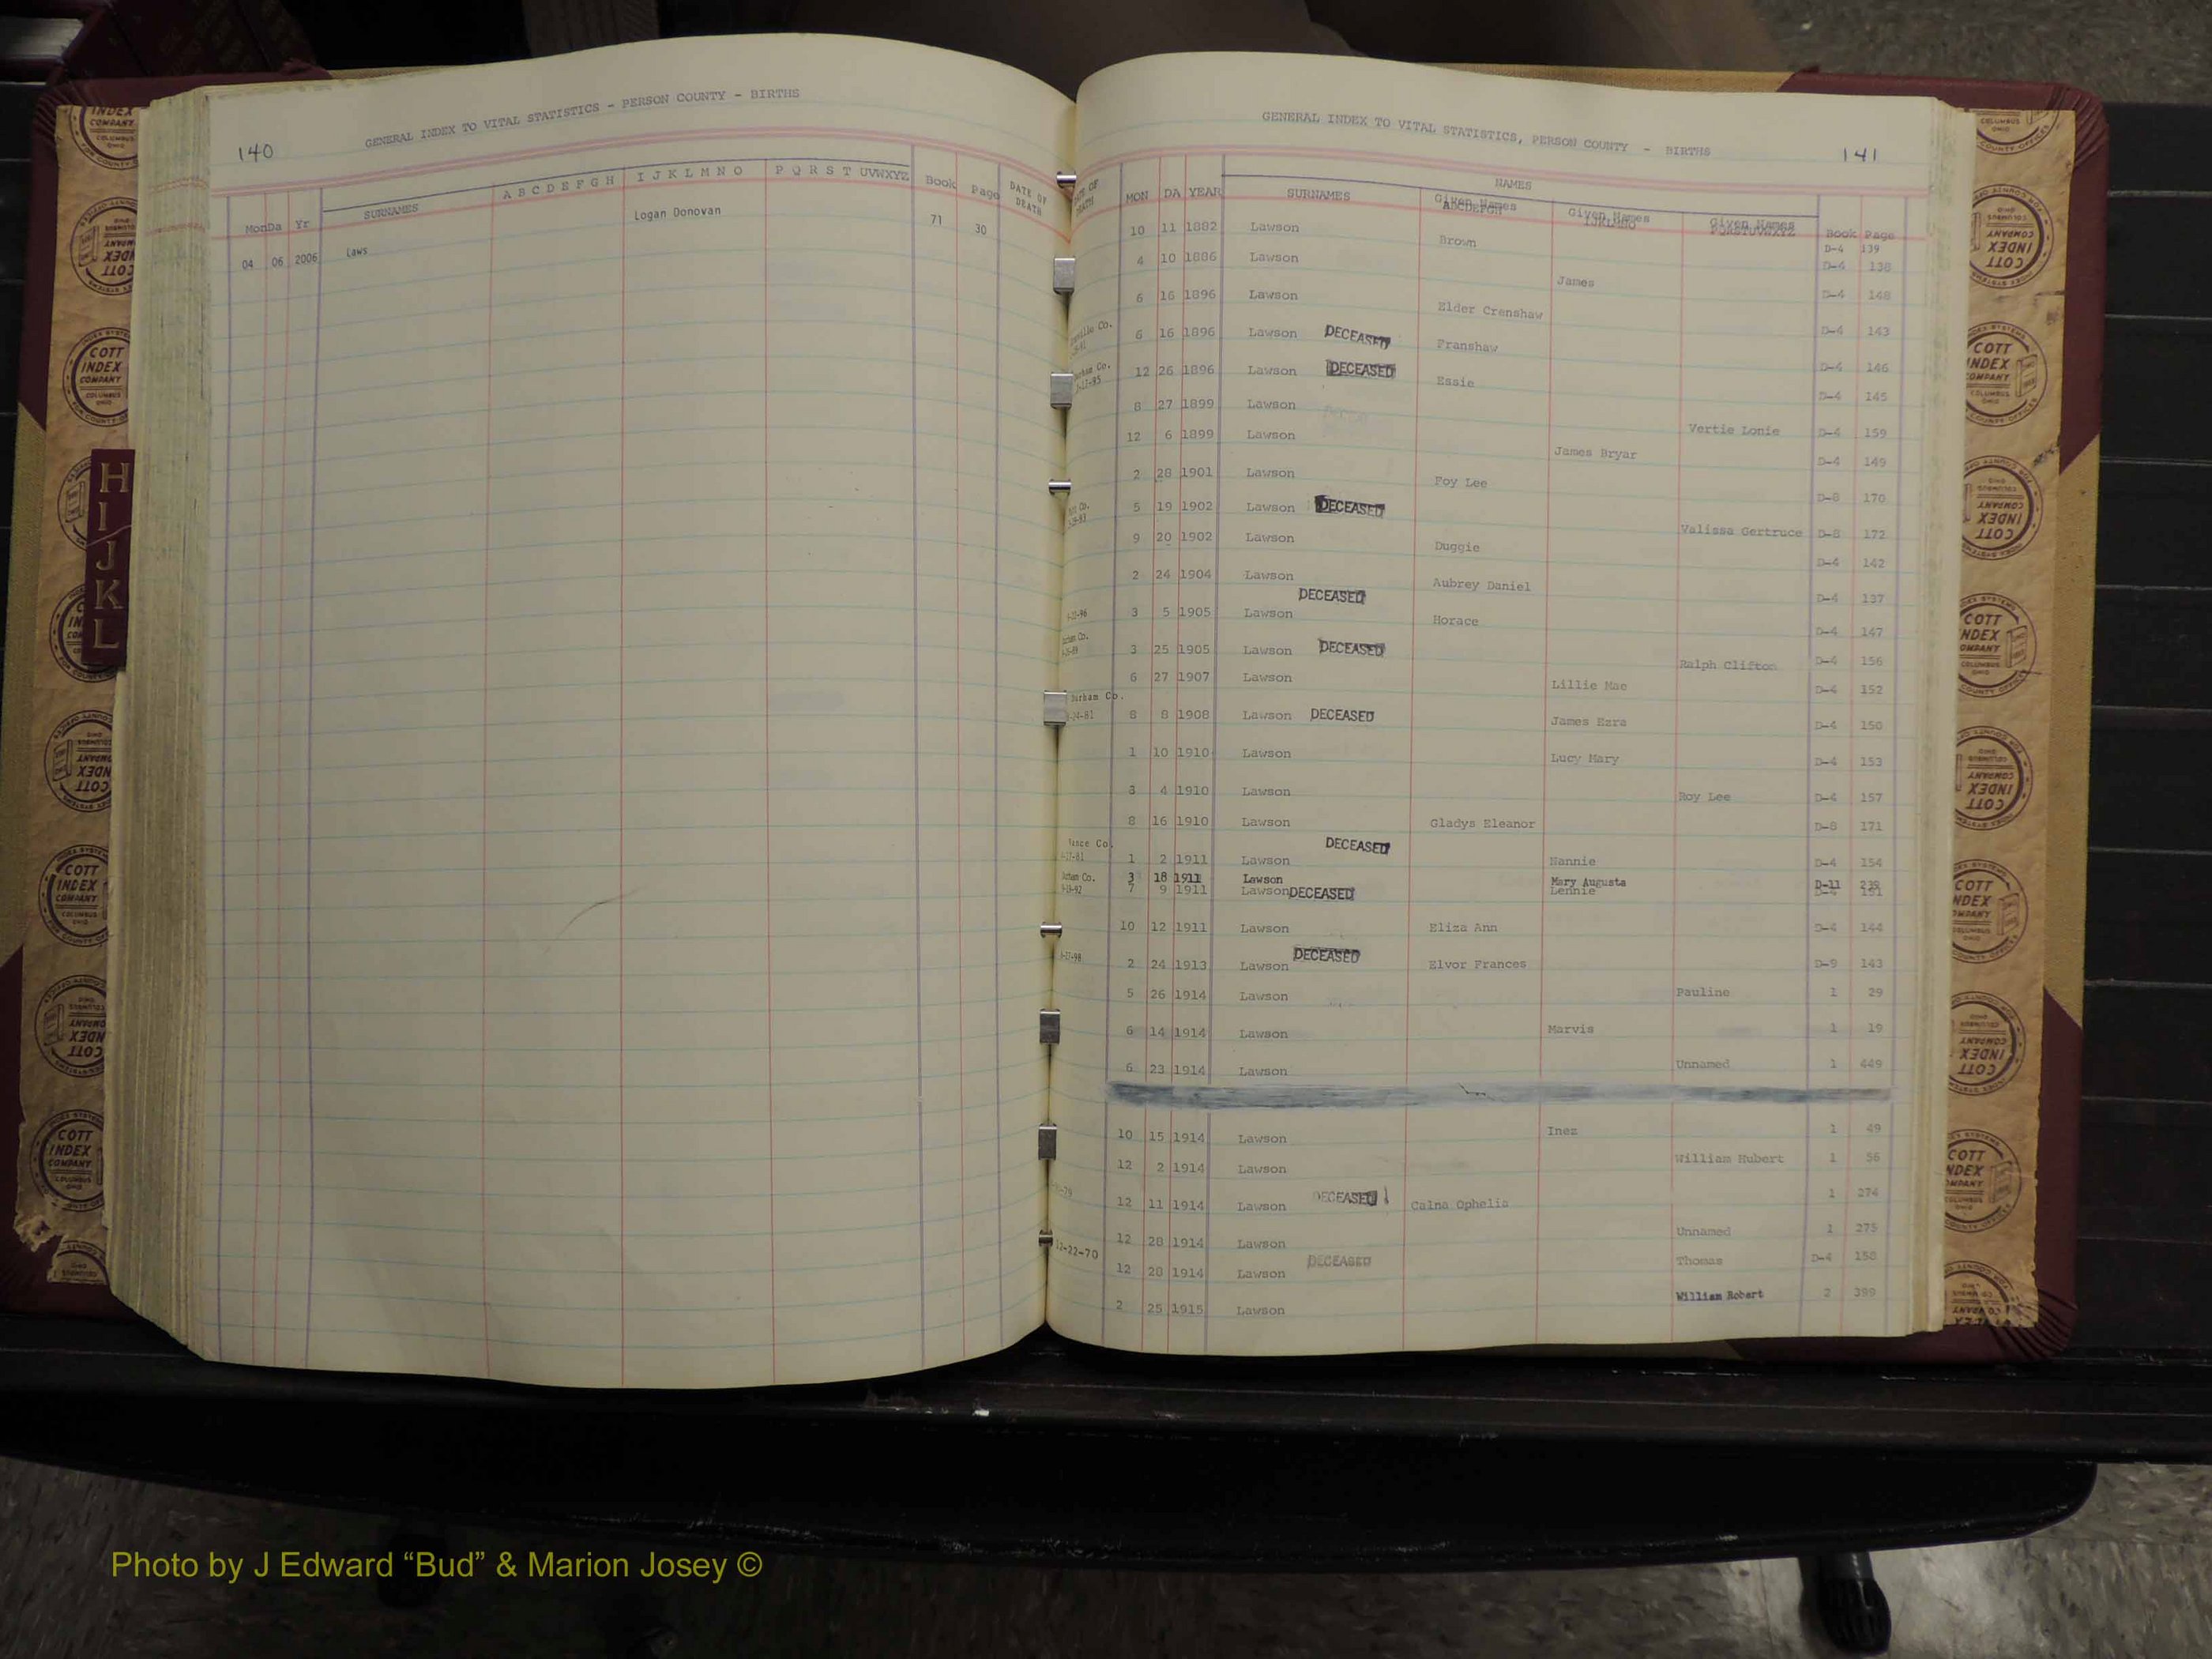 140
GENERAL INDEX TO VITAL STATISTICS - PERSON COUNTY - BIRTHS
MonDa Yr SURNAMES A B C D E F G H I J K L M N O P Q R S T UVWXYZ Book Page DATE OF DEATH
04 06 2006 Laws Logan Donovan 71 30
GENERAL INDEX TO VITAL STATISTICS, PERSON COUNTY - BIRTHS
141
NAMES
MON DA YEAR SURNAMES Given Names ABCDEFGH Given Names IJKLMNO Given Names PQRSTUVWXYZ Book Page
10 11 1882 Lawson Brown D-4 139
4 10 1886 Lawson James D-4 138
6 16 1896 Lawson Elder Crenshaw D-4 148
6 16 1896 Lawson DECEASED Franshaw D-4 143
12 26 1896 Lawson DECEASED Essie D-4 146
8 27 1899 Lawson Vertie Lonie D-4 145
12 6 1899 Lawson James Bryar D-4 159
2 28 1901 Lawson Foy Lee D-4 149
5 19 1902 Lawson DECEASED Valissa Gertruce D-8 170
9 20 1902 Lawson Duggie D-8 172
2 24 1904 Lawson Aubrey Daniel D-4 142
3 5 1905 Lawson DECEASED Horace D-4 137
D-4 147
3 25 1905 Lawson DECEASED Ralph Clifton D-4 156
6 27 1907 Lawson Lillie Mae D-4 152
Durham Co.
8 8 1908 Lawson DECEASED James Ezra D-4 150
1 10 1910 Lawson Lucy Mary D-4 153
3 4 1910 Lawson Roy Lee D-4 157
8 16 1910 Lawson Gladys Eleanor D-8 171
Vance Co.
1 2 1911 Lawson DECEASED Nannie D-4 154
3 18 1911 Lawson Mary Augusta D-11
7 9 1911 Lawson DECEASED Lennie D-4 151
10 12 1911 Lawson Eliza Ann D-4 144
2 24 1913 Lawson DECEASED Elvor Frances D-9 143
5 26 1914 Lawson Pauline 1 29
6 14 1914 Lawson Marvis 1 19
6 23 1914 Lawson Unnamed 1 449
10 15 1914 Lawson Inez 1 49
12 2 1914 Lawson William Hubert 1 56
12 11 1914 Lawson DECEASED Calna Ophelia 1 274
12 28 1914 Lawson Unnamed 1 275
12-22-70 12 28 1914 Lawson DECEASED Thomas D-4 158
2 25 1915 Lawson William Robert 2 399
H
I
J
K
L
COTT INDEX COMPANY COLUMBUS OHIO
Photo by J Edward “Bud” & Marion Josey ©